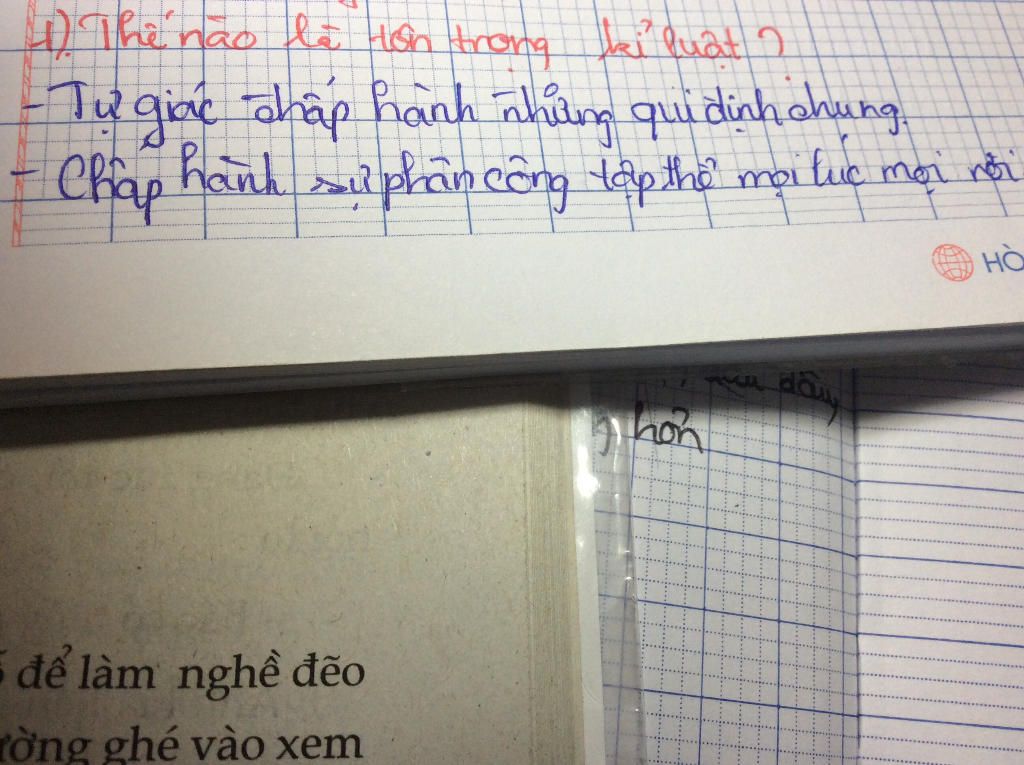 1). Thế nào là tôn trọng kỉ luật?
- Tự giác chấp hành những qui định chung.
- Chấp hành sự phân công tập thể mọi lúc mọi nơi
HÒ
đây
hơn
để làm nghề đẽo
ường ghé vào xem